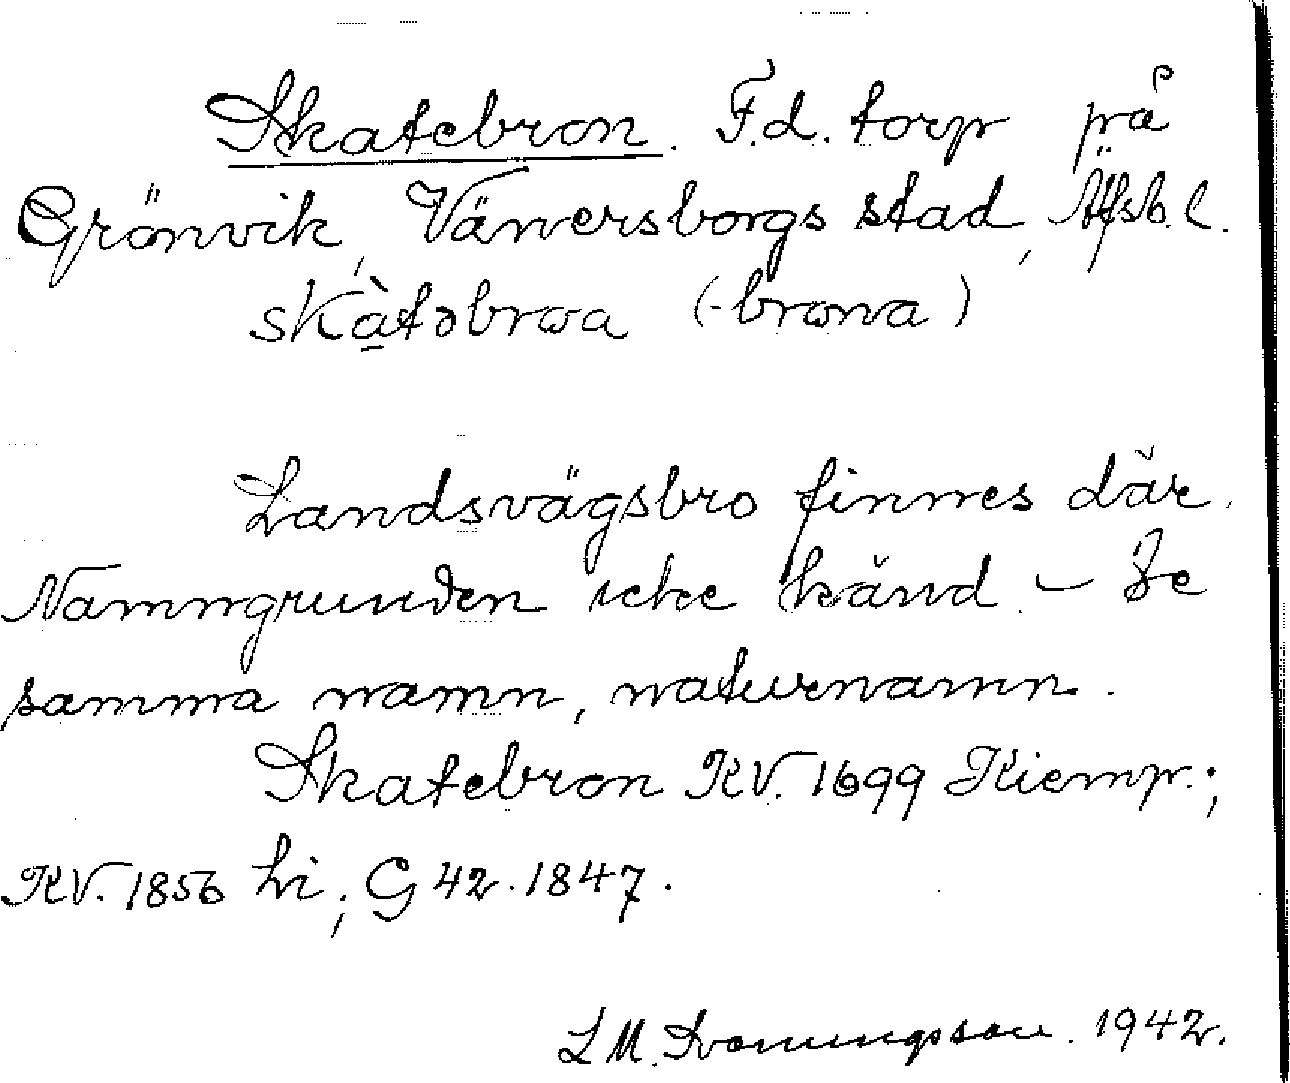 Skatebron. F.d. torp på
Grönvik, Vänersborgs stad, Äfsb. l.
skàtəbrωa (-brωna)
Landsvägsbro finnes där.
Namngrunden icke känd. – Se
samma namn, naturnamn.
Skatebron KV. 1699 Kiemp.;
KV. 1856 Li; G 42. 1847.
L M. Svanungsson. 1942.